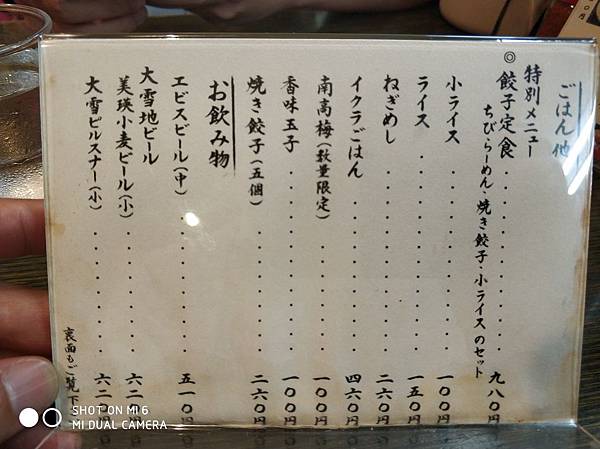 ごはん他
特別メニュー
◎餃子定食・・・・・・・・九八〇円
ちびらーめん・焼き餃子・小ライスのセット
小ライス・・・・・・・・一〇〇円
ライス・・・・・・・・一五〇円
ねぎめし・・・・・・・・二六〇円
イクラごはん・・・・・・・・四六〇円
南高梅(数量限定)・・・・・・一〇〇円
香味玉子・・・・・・・・一〇〇円
焼き餃子(五個)・・・・・・二六〇円
お飲み物
エビスビール(中)・・・・・・五一〇円
大雪地ビール
美瑛小麦ビール(小)・・・・・・六二〇円
大雪ピルスナー(小)・・・・・・六二〇円
裏面もご覧下
SHOT ON MI 6
MI DUAL CAMERA